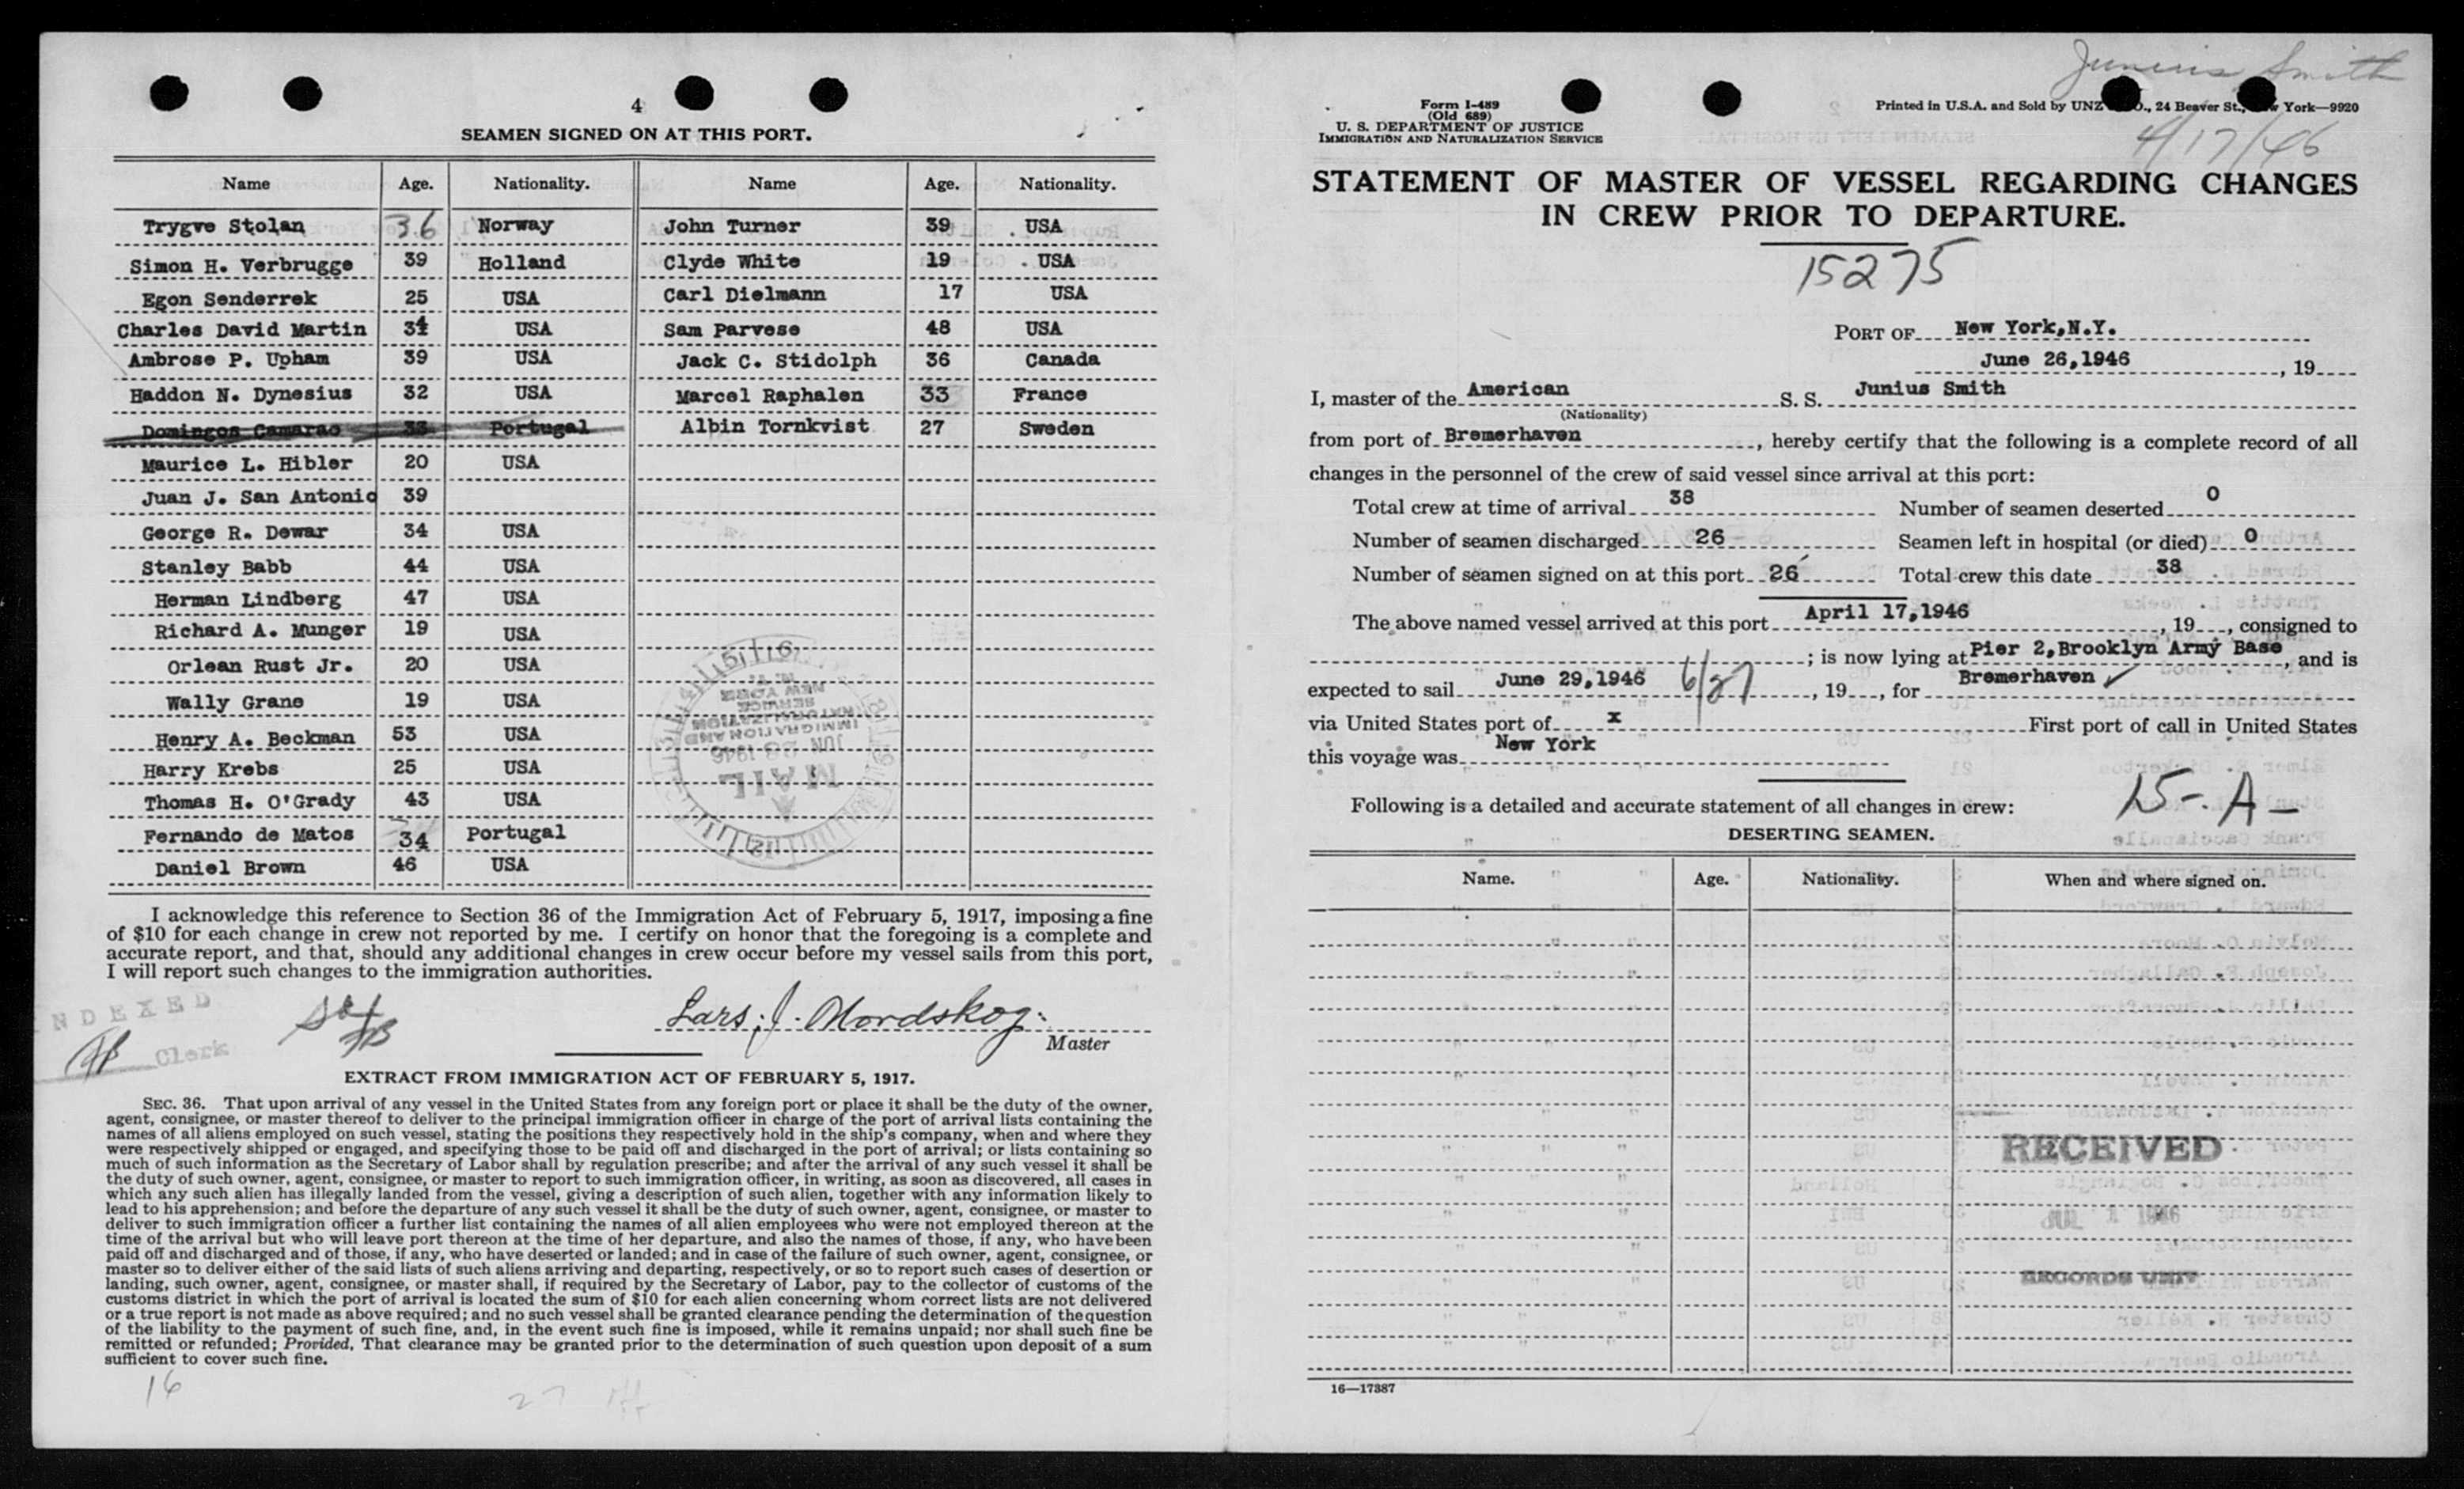 4
SEAMEN SIGNED ON AT THIS PORT.
Name Age. Nationality. Name Age. Nationality.
Trygve Stolan 36 Norway John Turner 39 USA
Simon H. Verbrugge 39 Holland Clyde White 19 USA
Egon Senderrek 25 USA Carl Dielmann 17 USA
Charles David Martin 34 USA Sam Parvese 48 USA
Ambrose P. Upham 39 USA Jack C. Stidolph 36 Canada
Haddon N. Dynesius 32 USA Marcel Raphalen 33 France
Domingos Camarao 33 Portugal Albin Tornkvist 27 Sweden
Maurice L. Hibler 20 USA
Juan J. San Antonio 39
George R. Dewar 34 USA
Stanley Babb 44 USA
Herman Lindberg 47 USA
Richard A. Munger 19 USA
Orlean Rust Jr. 20 USA
Wally Grane 19 USA
Henry A. Beckman 53 USA
Harry Krebs 25 USA
Thomas H. O'Grady 43 USA
Fernando de Matos 34 Portugal
Daniel Brown 46 USA
I acknowledge this reference to Section 36 of the Immigration Act of February 5, 1917, imposing a fine
of $10 for each change in crew not reported by me. I certify on honor that the foregoing is a complete and
accurate report, and that, should any additional changes in crew occur before my vessel sails from this port,
I will report such changes to the immigration authorities.
NDEXED
Clerk
Lars J. Nordskog
Master
EXTRACT FROM IMMIGRATION ACT OF FEBRUARY 5, 1917.
SEC. 36. That upon arrival of any vessel in the United States from any foreign port or place it shall be the duty of the owner,
agent, consignee, or master thereof to deliver to the principal immigration officer in charge of the port of arrival lists containing the
names of all aliens employed on such vessel, stating the positions they respectively hold in the ship's company, when and where they
were respectively shipped or engaged, and specifying those to be paid off and discharged in the port of arrival; or lists containing so
much of such information as the Secretary of Labor shall by regulation prescribe; and after the arrival of any such vessel it shall be
the duty of such owner, agent, consignee, or master to report to such immigration officer, in writing, as soon as discovered, all cases in
which any such alien has illegally landed from the vessel, giving a description of such alien, together with any information likely to
lead to his apprehension; and before the departure of any such vessel it shall be the duty of such owner, agent, consignee, or master to
deliver to such immigration officer a further list containing the names of all alien employees who were not employed thereon at the
time of the arrival but who will leave port thereon at the time of her departure, and also the names of those, if any, who have been
paid off and discharged and of those, if any, who have deserted or landed; and in case of the failure of such owner, agent, consignee, or
master so to deliver either of the said lists of such aliens arriving and departing, respectively, or so to report such cases of desertion or
landing, such owner, agent, consignee, or master shall, if required by the Secretary of Labor, pay to the collector of customs of the
customs district in which the port of arrival is located the sum of $10 for each alien concerning whom correct lists are not delivered
or a true report is not made as above required; and no such vessel shall be granted clearance pending the determination of the question
of the liability to the payment of such fine, and, in the event such fine is imposed, while it remains unpaid; nor shall such fine be
remitted or refunded; Provided, That clearance may be granted prior to the determination of such question upon deposit of a sum
sufficient to cover such fine.
16
27
Junius Smith
4/17/46
Form I-489
(Old 689)
U. S. DEPARTMENT OF JUSTICE
IMMIGRATION AND NATURALIZATION SERVICE
Printed in U.S.A. and Sold by UNZ O., 24 Beaver St., York—9920
STATEMENT OF MASTER OF VESSEL REGARDING CHANGES
IN CREW PRIOR TO DEPARTURE.
15275
PORT OF New York,N.Y.
June 26,1946, 19
I, master of the American S. S. Junius Smith
(Nationality)
from port of Bremerhaven, hereby certify that the following is a complete record of all
changes in the personnel of the crew of said vessel since arrival at this port:
Total crew at time of arrival 38 Number of seamen deserted 0
Number of seamen discharged 26 Seamen left in hospital (or died) 0
Number of seamen signed on at this port 26 Total crew this date 38
The above named vessel arrived at this port April 17,1946, 19, consigned to
; is now lying at Pier 2,Brooklyn Army Base, and is
expected to sail June 29,1946 6/27, 19, for Bremerhaven ✓
via United States port of x First port of call in United States
this voyage was New York
Following is a detailed and accurate statement of all changes in crew: 15-A-
DESERTING SEAMEN.
Name. Age. Nationality. When and where signed on.
RECEIVED
JUL 1 1946
RECORDS UNIT
16—17387